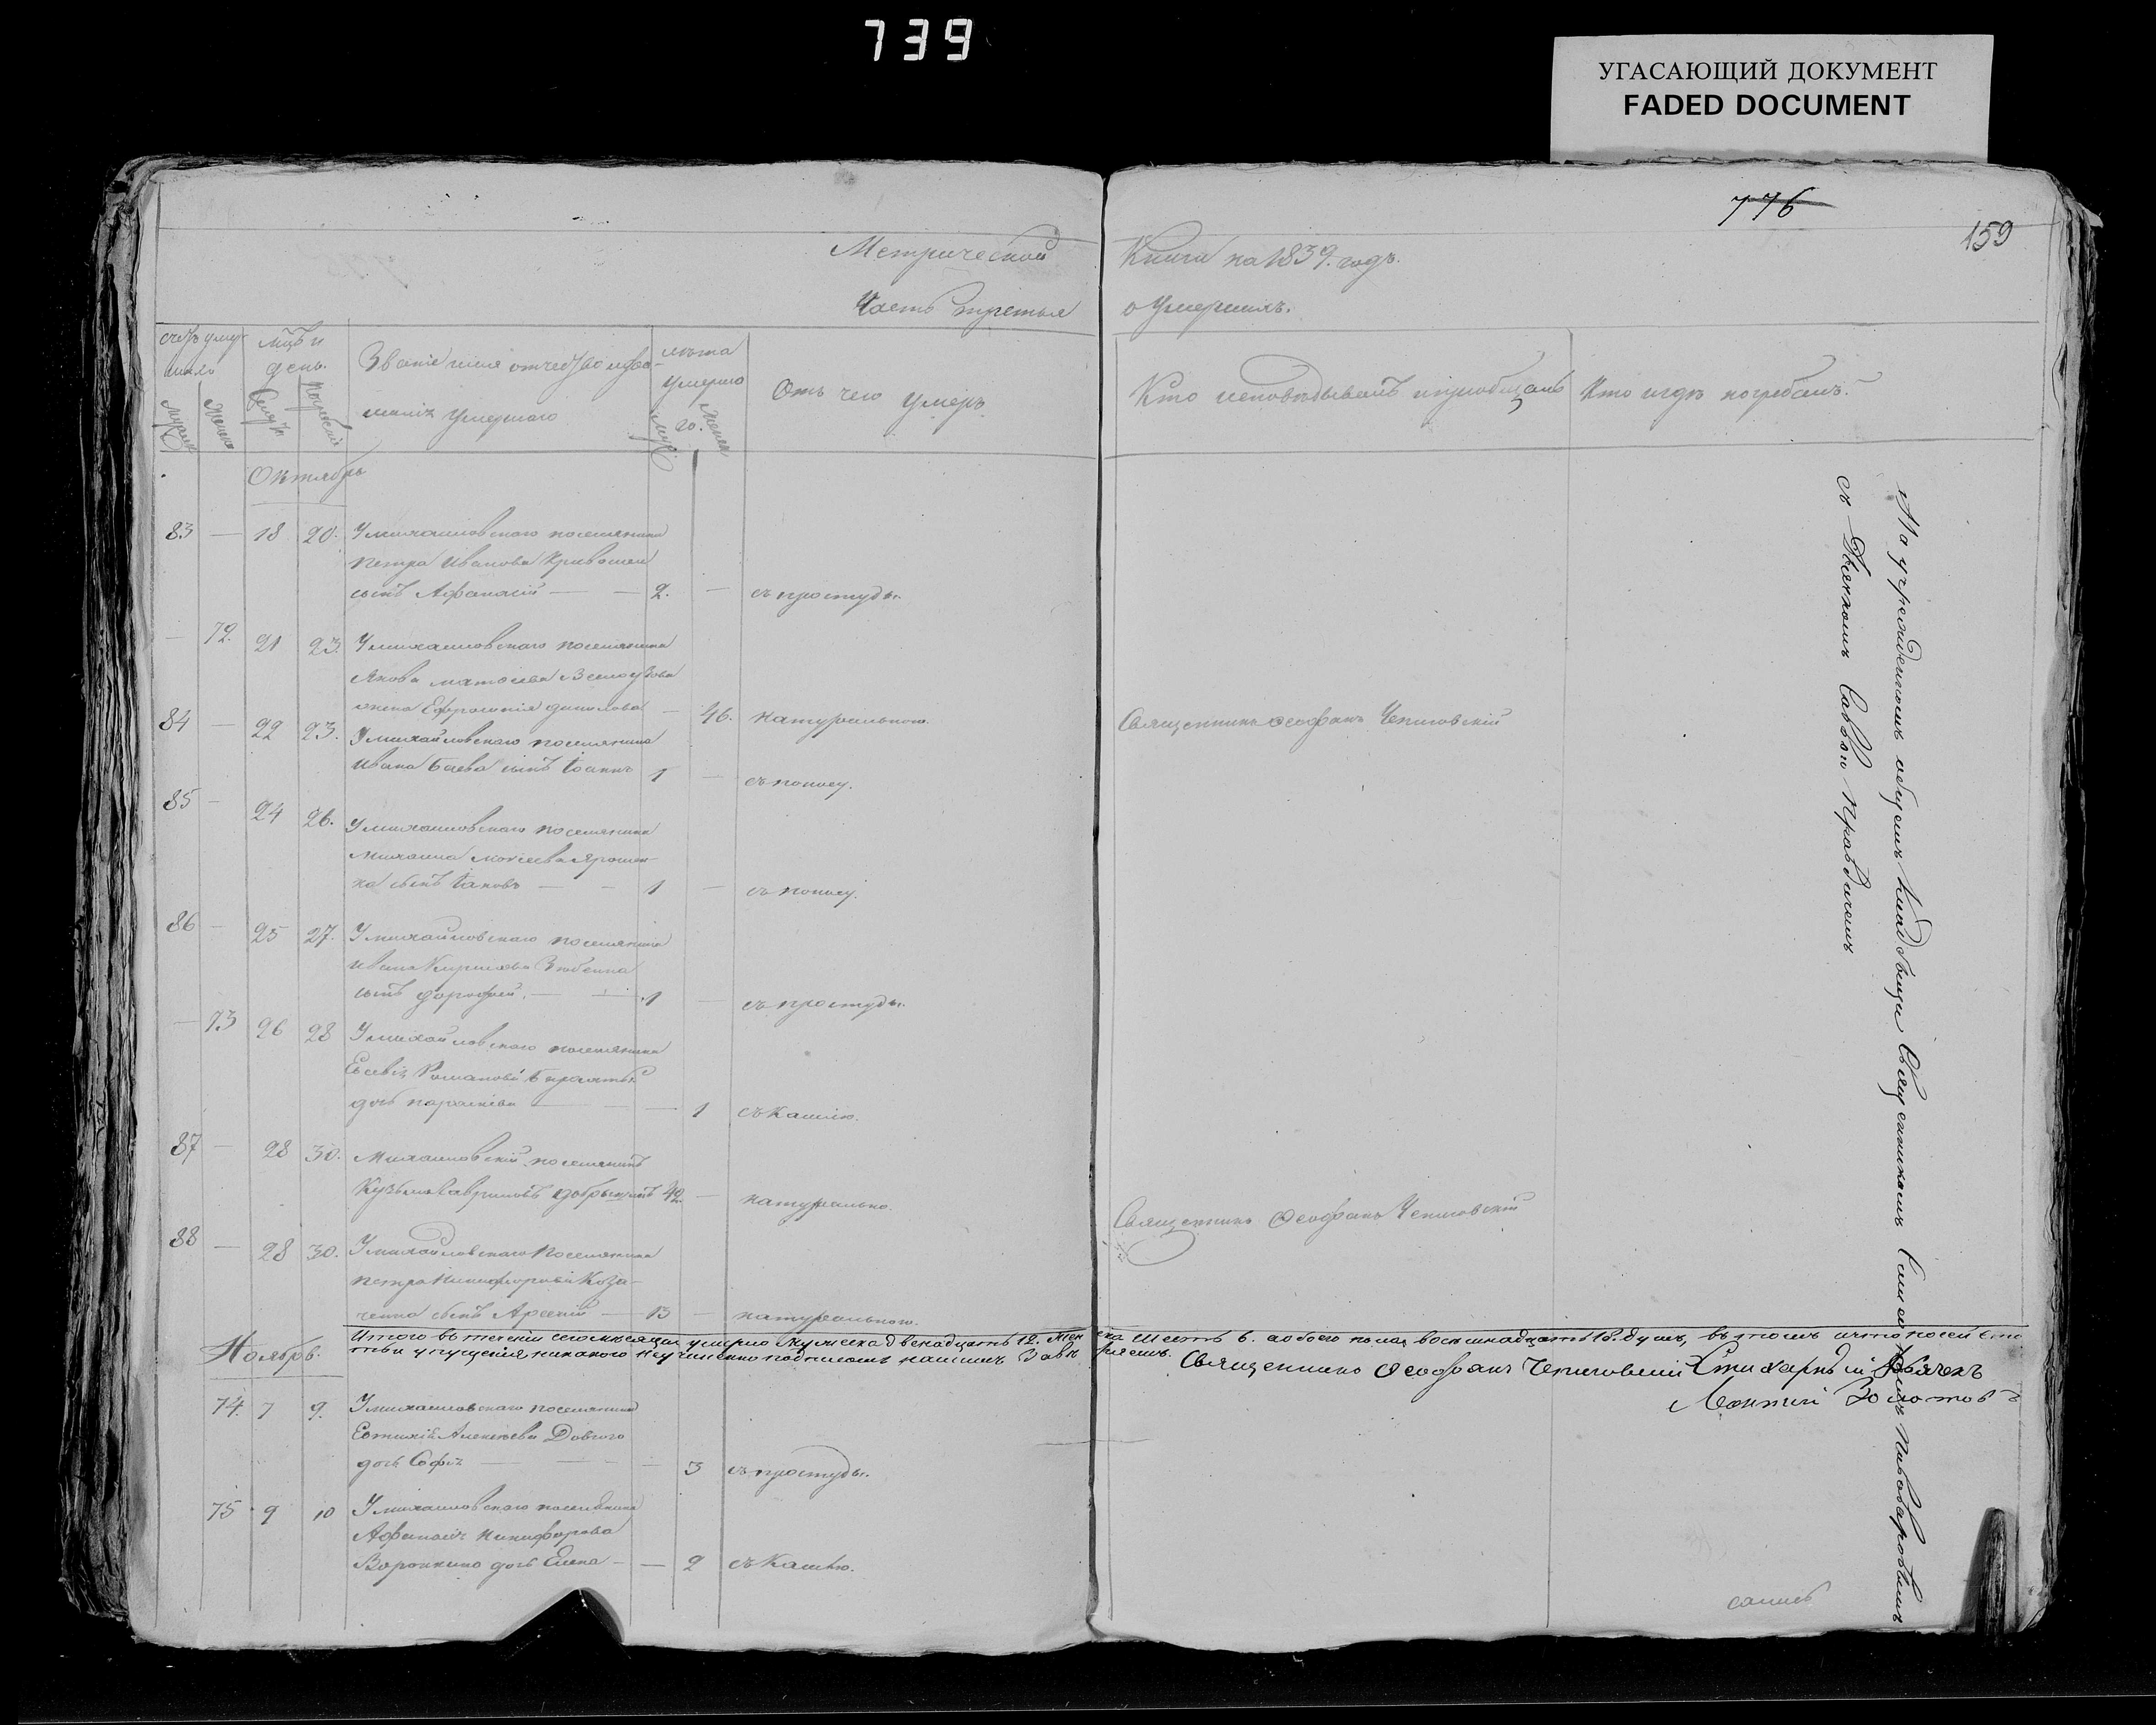 739
УГАСАЮЩИЙ ДОКУМЕНТ
FADED DOCUMENT
776
159
Метрической Книги на 1839. годъ.
Часть третья о Умершихъ.
мцъ и день.
Званіе имя отчество
умершаго
лѣта умершаго.
Отъ чего умеръ.
Кто исповѣдывалъ и пріобщалъ
Кто и гдѣ погребалъ.
Октябрь
83 — 18 20. У михаиловскаго поселянина
петра Иванова Кривошеи
сынъ Афанасій — — 2. — съ простуды.
— 72. 21 23. У михаиловскаго поселянина
Якова
жена Ефросинія данилова — 46. натурально. Священникъ Ѳеофанъ Чепиговскій
84 — 22 23. У михайловскаго поселянина
Ивана Баева сынъ Іоаннъ 1 — съ поносу.
85 — 24 26. У михаиловскаго поселянина
михаила моисеева Ярошен-
ка сынъ Іаковъ — — 1 — съ поносу.
86 — 25 27. У михайловскаго поселянина
Ивана Кирилова
сынъ дорофей. — — 1 — съ простуды.
— 73 26 28 У михайловскаго поселянина
Евсевія Романова
дочь параскева — — 1 съ кашлю.
87 — 28 30. Михаиловскій поселянинъ
Кузьма 42. — натурально. Священникъ Ѳеофанъ Чепиговскій
88 — 28 30. У михайловскаго поселянина
петра Никифорова Коза-
ченка сынъ Арсеній — 13 — натурально.
Итого въ теченіи сего мѣсяца умерло мужеска двенадцать 12. женска шесть 6. а обоего пола восьмнадцать 18. душъ, въ томъ что
упущенія никакого не учинено подписомъ нашимъ Завѣряемъ.
Священникъ Ѳеофанъ Чепиговскій Стихарный Дьячекъ
Леонтій Золотовъ
Ноябрь.
74. 7 9. У михаиловскаго поселянина
Евтихія Алексеева Довгого
дочь Софія — — 3 съ простуды.
75 9 10 У михаиловскаго поселянина
Афанасія Никифорова
Воронкина дочь Елена — — 2 съ кашлю.
На учрежденномъ общемъ кладбищѣ Священникомъ Пивоваровымъ
съ Дьячкомъ Саввою Правдинымъ